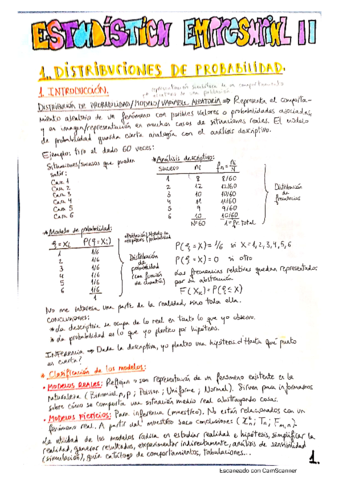 ESTADÍSTICA EMPRESARIAL II
1. DISTRIBUCIONES DE PROBABILIDAD.
1. INTRODUCCIÓN.
DISTRIBUCIÓN DE PROBABILIDAD/MODELO/VARIABLE ALEATORIA ⇒ Representa el comporta-
miento aleatorio de un fenómeno con posibles valores o probabilidades asociadas
y es imagen/representación en muchos casos de situaciones reales. El módulo
de probabilidad guarda cierta analogía con el análisis descriptivo.
Ejemplo: tiro el dado 60 veces:
Situaciones/sucesos que pueden
salir:
Cara 1
Cara 2
Cara 3
Cara 4
Cara 5
Cara 6
* Análisis descriptivo:
Suceso ni
1 8 8/60
2 12 12/60
3 10 10/60
4 11
5 9 9/60
6 10 10/60
N=60
Distribución
de
frecuencias
* Modelo de probabilidad:
ξ = Xi P(ξ = Xi)
1 1/6
2 1/6
3 1/6
4 1/6
5 1/6
6 1/6
1
Distribución
de
probabilidad
(con función
de cuantía)
P(ξ = X) = 1/6 si X = 1, 2, 3, 4, 5, 6
P(ξ = X) = 0 si otro
Las frecuencias relativas quedan representadas
por su abstracción
No me interesa una parte de la realidad, sino toda ella.
CONCLUSIONES:
* La descriptiva se ocupa de lo real en tanto lo que yo observo.
* La probabilidad es lo que yo planteo por hipótesis.
INFERENCIA → Dada la descriptiva, yo planteo una hipótesis
* Clasificación de los modelos:
* MODELOS REALES: Reflejan o son representación de un fenómeno existente en la
naturaleza (Binomial, Poisson, Uniforme, Normal). Sirven para informarnos
sobre cómo se comporta una situación medio real abstrayendo cosas.
* MODELOS FICTICIOS: Para inferencia (muestreo). No están relacionados con un
fenómeno real. A partir del muestreo saco conclusiones
La utilidad de los modelos radica en estudiar realidad e hipótesis, simplificar la
realidad, generar resultados, experimentar indirectamente, análisis de sensibilidad
(simulación), guía catálogo de comportamientos, tabulaciones...
1.
Escaneado con CamScanner